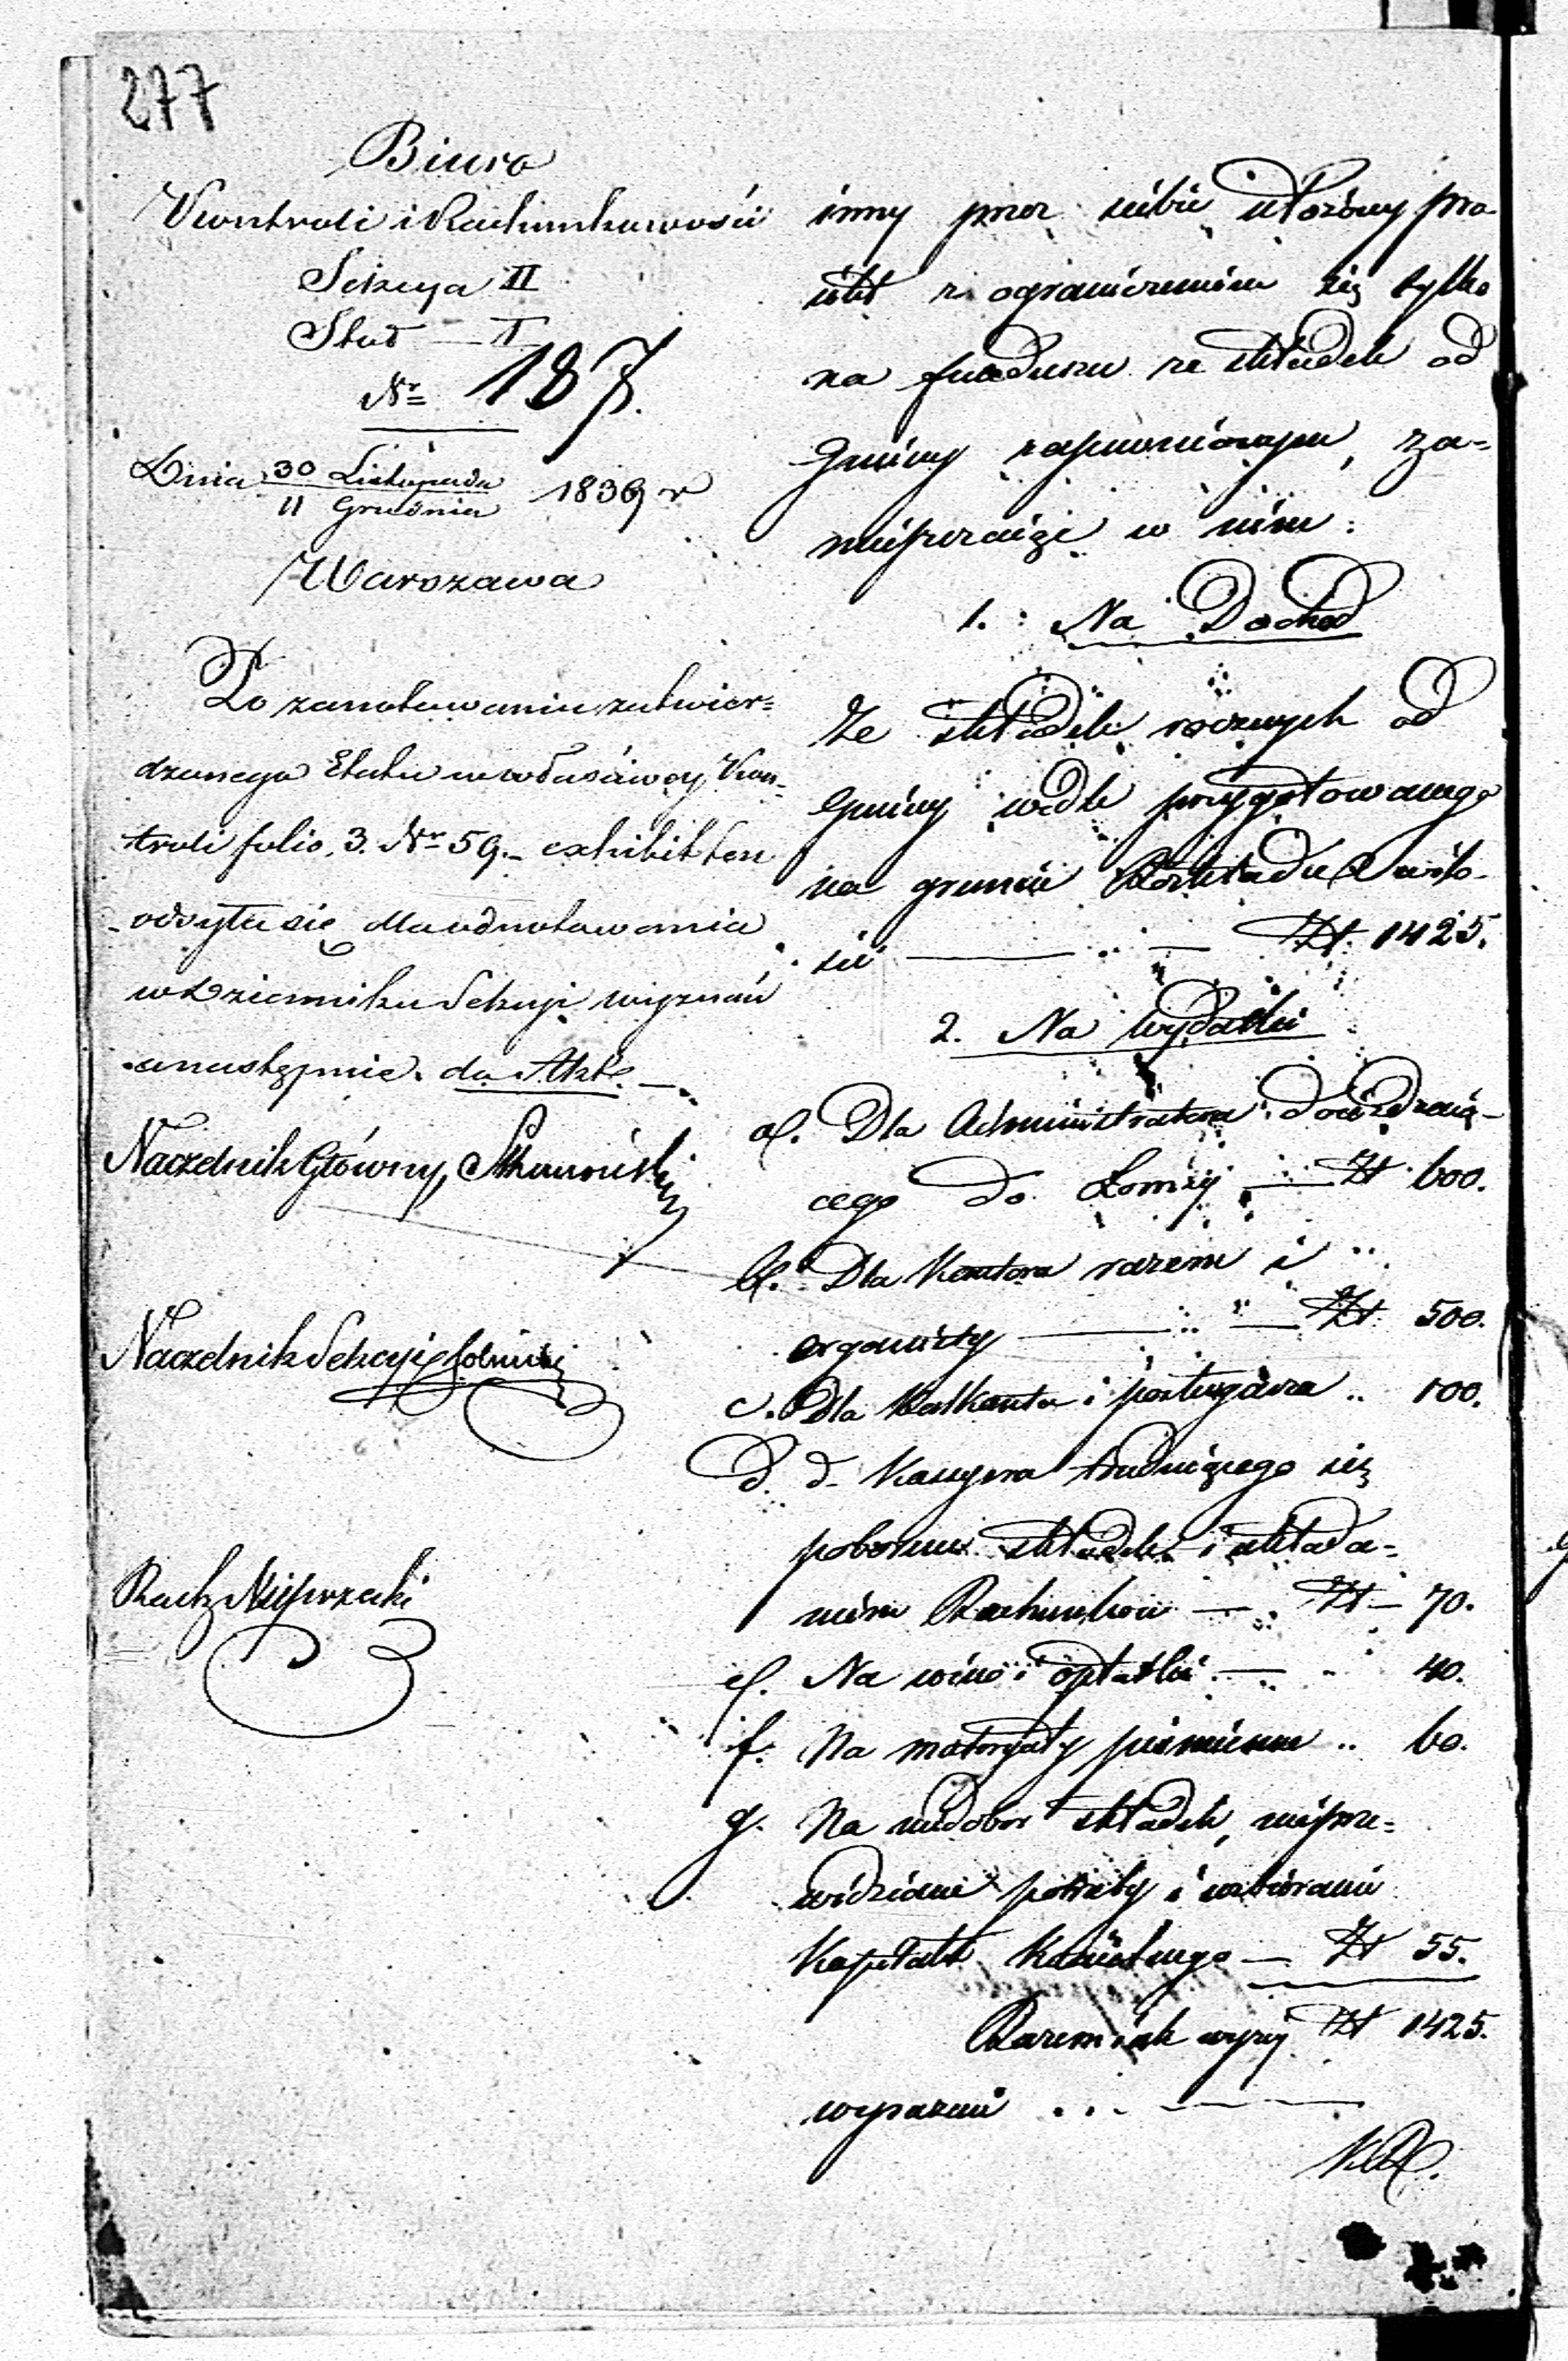 277
Biuro
Kontroli i Rachunkowości
Sekcya II
Stół — I
Nr 187.
Dnia 30 Listopada / 11 Grudnia 1839 r
Warszawa
Po zanotowaniu zatwier=
dzonego Etatu w właściwey Kon=
troli folio 3. Nr 59. exhibit ten
odsyła się dla odnotowania
w Dzienniku Sekcyi wyznań
a następnie do Akt. —
Naczelnik Główny
Naczelnik Sekcyi
Rach
inny przez siebie ułożony pro-
iekt z ograniczeniem się tylko
na funduszu ze składek od
Gminy zapewnionym, za=
mieszczaiąc w nim:
1. Na Dochod
Ze składek rocznych od
Gminy wedle przygotowanego
na gruncie Rozkładu w ilo-
ści — Zł. 1425.
2. Na wydatki
a/. Dla Administratora doieżdzaią-
cego do Łomży — Zł 600.
b/. Dla Kantora razem i
organisty — Zł 500.
c. Dla Kalkanta i posługacza .. 100.
d. d- Kassyera trudniącego się
poborem składek i składa=
niem Rachunków — Zł — 70.
e/. Na wino i opłatki — 40.
f. Na materyały piśmienne .. 60.
g. Na niedobor składek, nieprze=
widziane potrzeby i uzbieranie
Kapitału Kościelnego — Zł 55.
Razem iak wyżej Zł 1425.
wyraźnie ... —